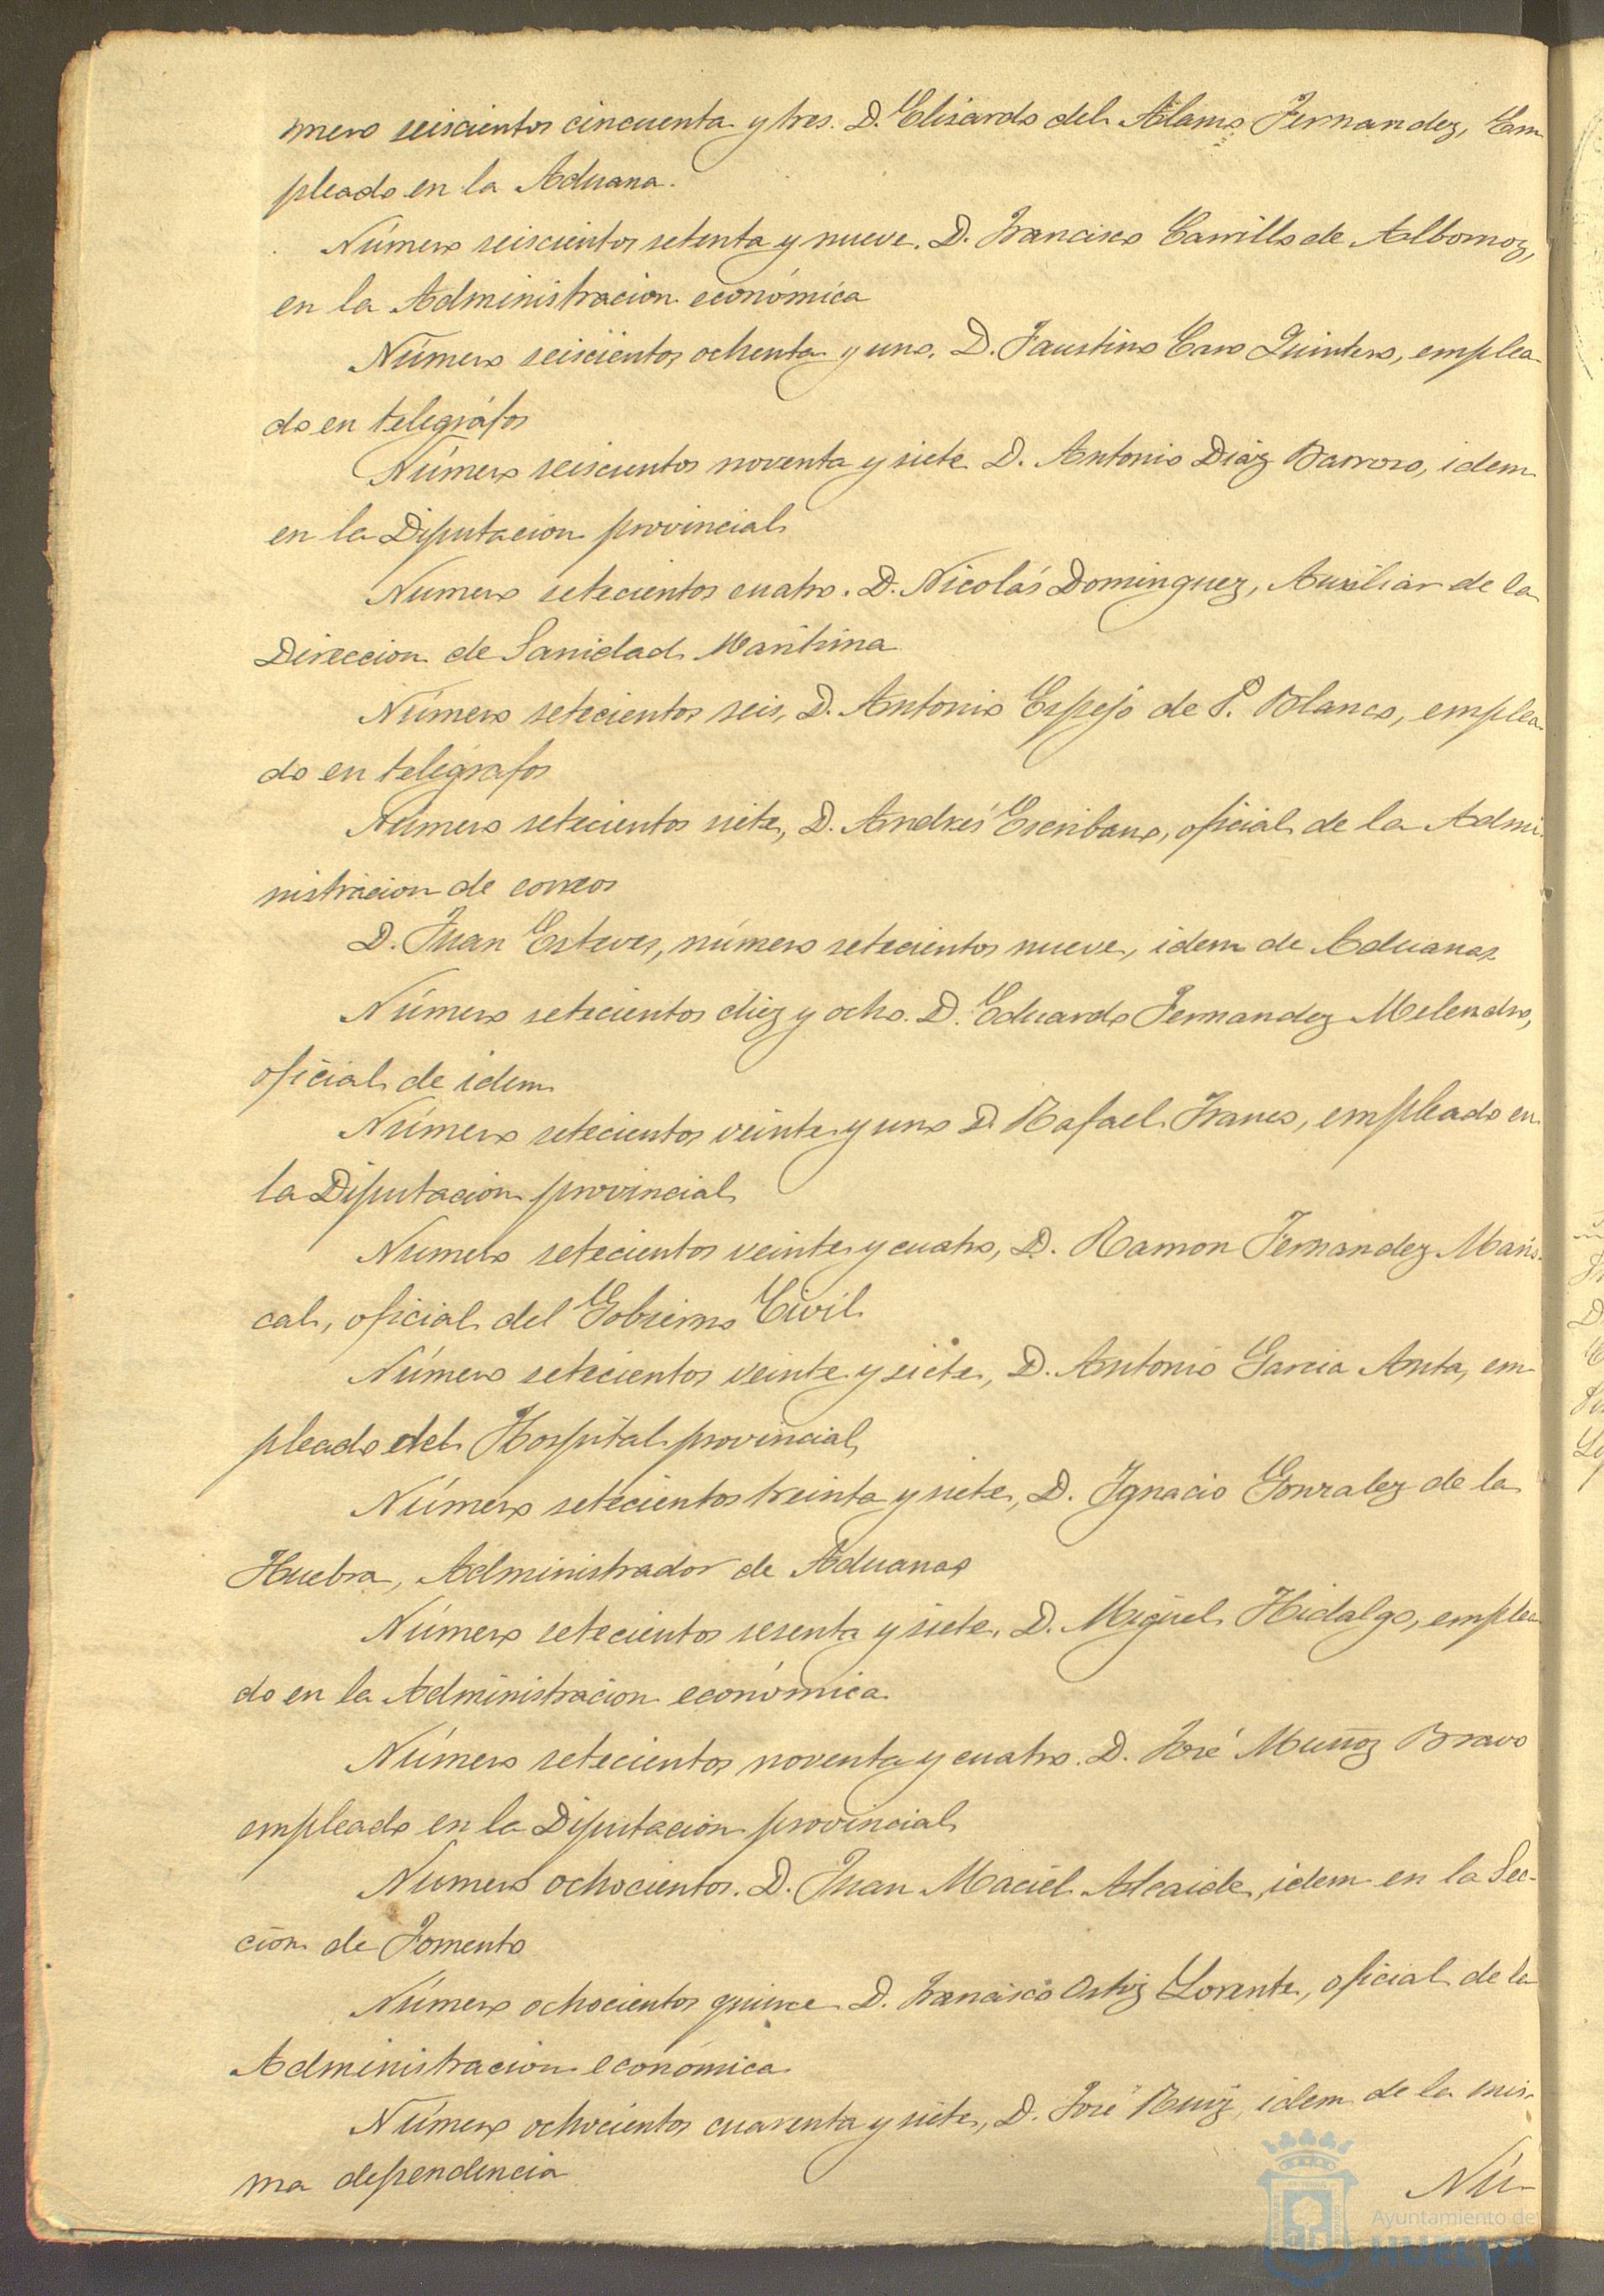 mero seiscientos cincuenta y tres. D. Elisardo del Alamo Fernandez, Em
pleado en la Aduana.
Número seiscientos setenta y nueve. D. Francisco Carrillo de Albornoz,
en la Administracion económica
Número seiscientos ochenta y uno. D. Faustino Caro Quintero, emplea-
do en telegráfos
Número seiscientos noventa y siete D. Antonio Diaz Barroso, idem
en la Diputacion provincial
Numero setecientos cuatro. D. Nicolás Dominguez, Auxiliar de la
Direccion de Sanidad Maritima
Número setecientos seis, D. Antonio Espejo de P. Blanco, emplea-
do en telégrafos
Número setecientos siete, D. Andrés Escribano, oficial de la Admi-
nistracion de correos
D. Juan Esteves, número setecientos nueve, idem de Aduanas
Número setecientos diez y ocho. D. Eduardo Fernandez Melendro,
oficial de idem
Número setecientos veinte y uno D. Rafael Franco, empleado en
la Diputacion provincial
Numero setecientos veinte y cuatro, D. Ramon Fernandez Maris-
cal, oficial del Gobierno Civil
Número setecientos veinte y siete, D. Antonio Garcia Anta, em-
pleado del Hospital provincial
Número setecientos treinta y siete, D. Ignacio Gonzalez de la
Huebra, Administrador de Aduanas
Número setecientos sesenta y siete. D. Miguel Hidalgo, emplea
do en la Administracion económica
Número setecientos noventa y cuatro. D. José Muñoz Bravo
empleado en la Diputacion provincial
Numero ochocientos. D. Juan Maciel Alcaide, idem en la Sec-
cion de Fomento
Número ochocientos quince D. Francisco Ortiz Lorente, oficial de la
Administracion económica
Número ochocientos cuarenta y siete, D. José Ruiz, idem de la mis-
ma dependencia
Nú-
Ayuntamiento de
HUELVA